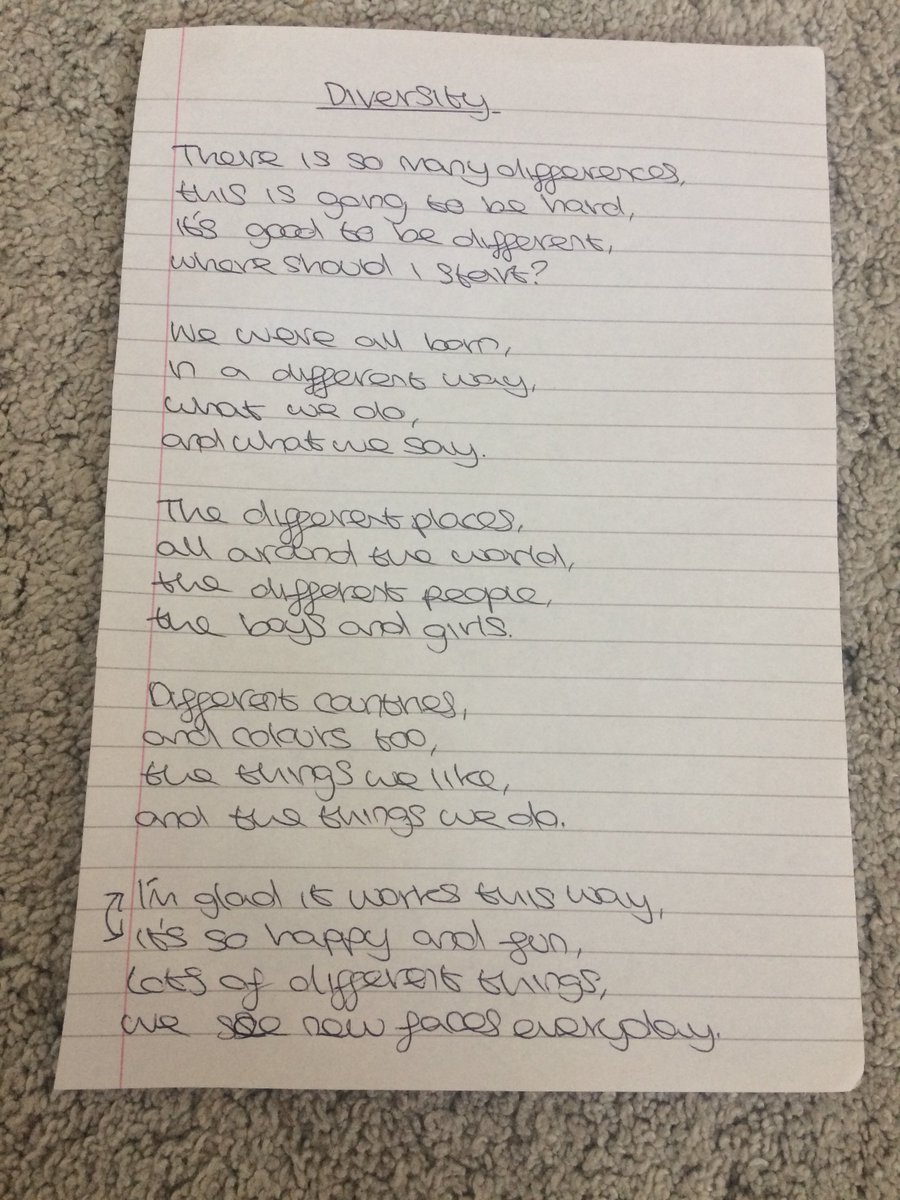 Diversity
There is so many differences,
this is going to be hard,
it's good to be different,
where should I start?
We were all born,
in a different way,
what we do,
and what we say.
The different places,
all around the world,
the different people,
the boys and girls.
Different countries,
and colours too,
the things we like,
and the things we do.
I'm glad it works this way,
it's so happy and fun,
Lots of different things,
we see new faces everyday.